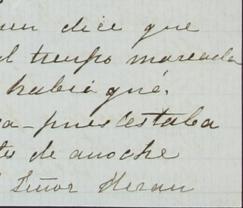 uen dice que
el tiempo marcada
habia qué.
a-pues estaba
de anoche
Señor Heran